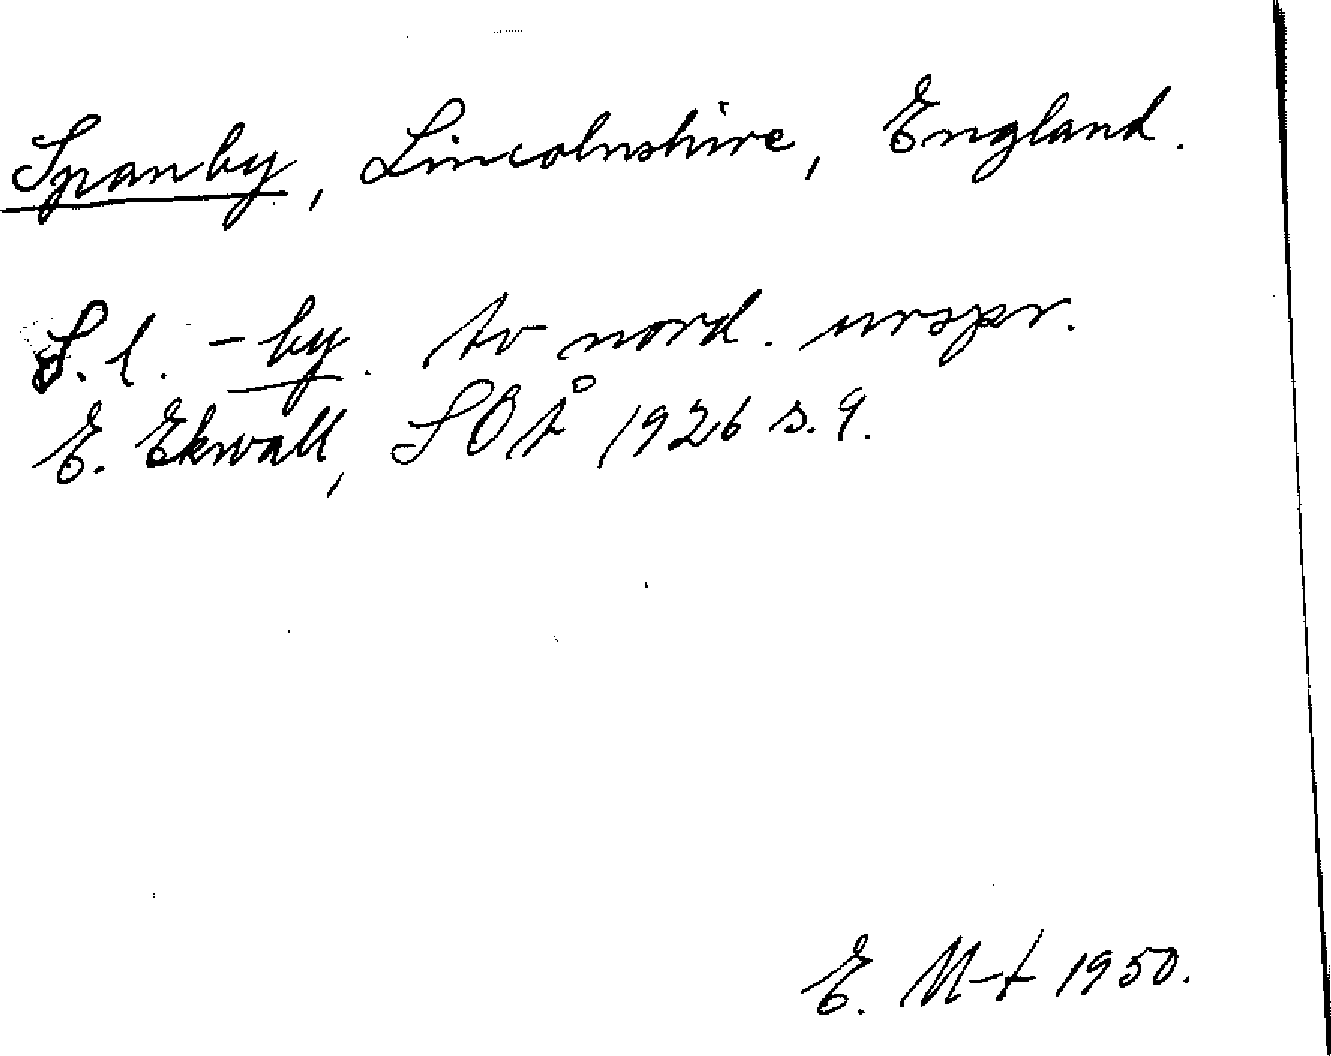 Spanby, Lincolnshire, England.
S.l. -by. Av nord. urspr.
E. Ekwall, SOÅ 1926 s. 9.
E. M-t 1950.